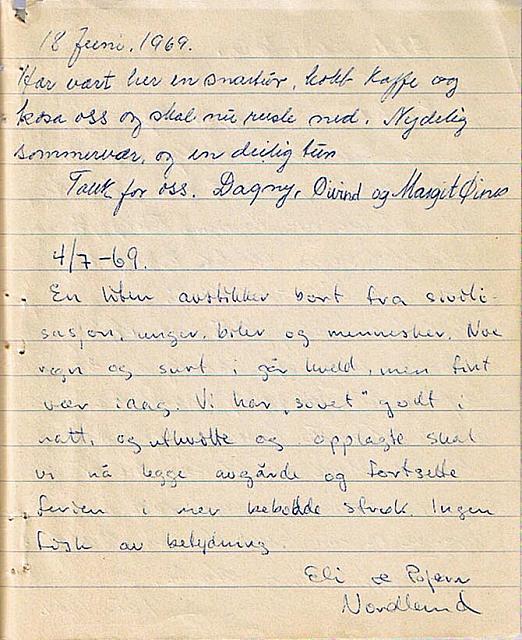 18 Juni. 1969.
Har vært her en snartur, kokt kaffe og
kosa oss og skal nu rusle ned. Nydelig
sommervær, og en deilig tur.
Takk for oss. Dagny, Øivind og Margit Øines
4/7-69.
En liten avstikker bort fra sivili-
sasjon, unger, biler og mennesker. Noe
regn og surt i går kveld, men fint
vær idag. Vi har "sovet" godt i
natt, og uthvilte og opplagte skal
vi nå legge avgårde og fortsette
ferien i mer bebodde strøk. Ingen
fisk av betydning.
Eli
Nordlund